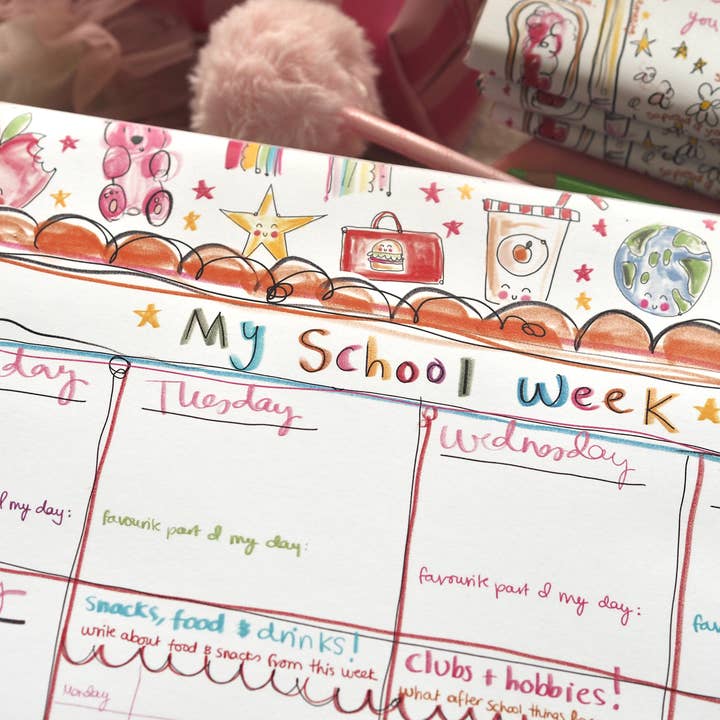 you
My School Week
day
Tuesday
Wednesday
my day:
favourite part of my day:
favourite part of my day:
fav
snacks, food & drinks!
write about food & snacks from this week
Monday
clubs + hobbies!
what after school things